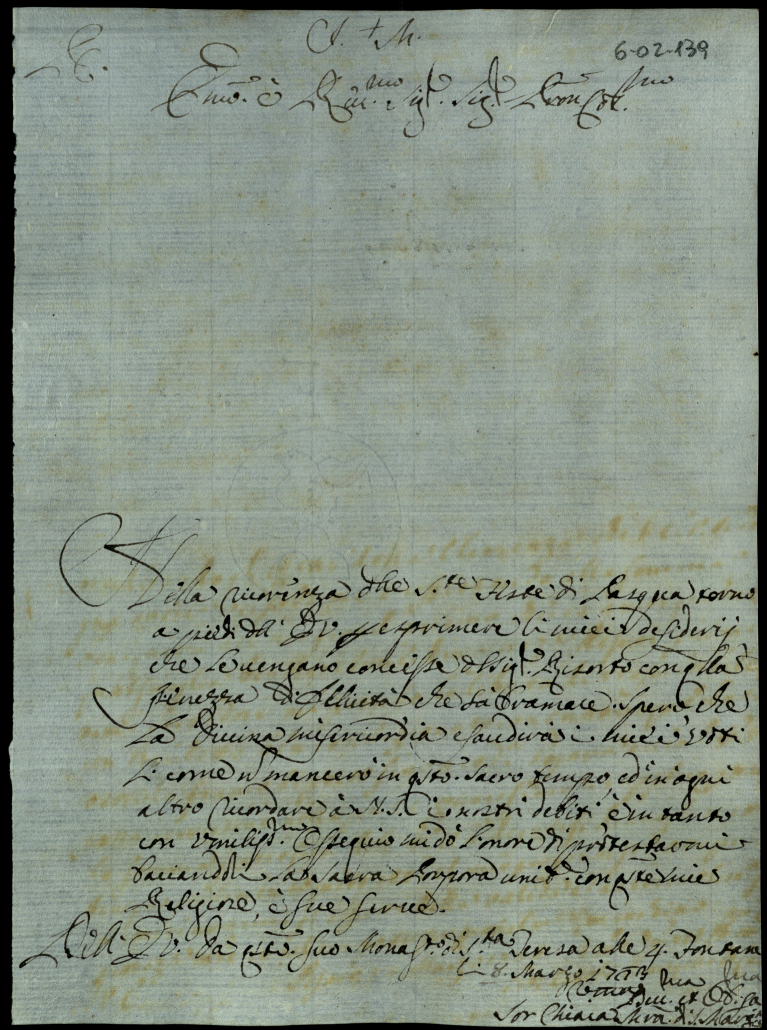 J. + M.
6-02-139
Emo. è Rmo. Sig.r Sig.r Pron Col.mo
Nella ricorenza dlle S.te Feste di Pasqua torno
a piedi dll' E.V. p esprimere li miei desiderij
che le vengano concesse dl Sig.r Risorto con qlla
pienezza di fellicità che sà bramare. spero che
la Divina misericordia esaudirà i miei voti
si come n mancerò in qsto. sacro tempo, ed in ogni
altro ricordare à N.S. i nostri debiti, è in tanto
con umiliss.mo Ossequio mi dò l'onore di protestarmi
baciandoli la Sacra Porpora unit.e con qste mie
Religiose, è sue serve.
Dell' E.V. Da qsto. suo Monast.o di S.ta Teresa alle 4. Fontane
li 8. Marzo
Sor Chiara Mra. di S.